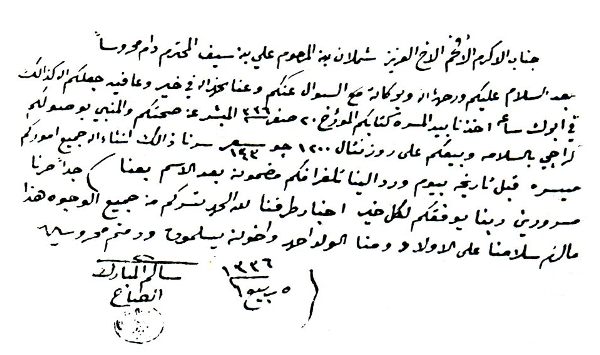 جناب الاكرم الأفخم الاخ العزيز شملان بن المرحوم علي بن سيف المحترم دام محروساً
بعد السلام عليكم ورحمة الله وبركاته مع السوال عنكم وعنا بحمد الله في خير وعافيه جعلكم الله كذالك
في ابرك ساعة اخذنا بيد المسرة كتابكم المورخ ٢٠ صفر ١٣٣٦ المبشر عن صحتكم والمنبي بوصولكم
كراجي بالسلامه وبيعكم على روزنثال ١٢٠٠ جو بسعر ١٤٣ سرنا ذالك انشاء الله جميع اموركم
ميسره قبل تاريخه بيوم ورد الينا تلغرافكم مضمونه بعد الاسم بعنا جدا صرنا
مسرورين ربنا يوفقكم لكل خير اخبار طرفنا لله الحمد تسركم من جميع الوجوه هذا
مالزم سلامنا على الاولاد ومنا الولد احمد واخوته يسلمون ودمتم محروسين
٥ ربيع ١ ١٣٣٦
سالم المبارك
الصباح